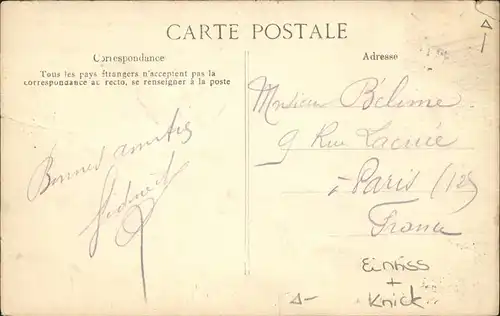 CARTE POSTALE
Correspondance
Tous les pays étrangers n'acceptent pas la
correspondance au recto, se renseigner à la poste
Adresse
Monsieur Bélime
9 Rue Lacuée
à Paris (12)
France
Bonnes amitiés
Einriss
+
Knick